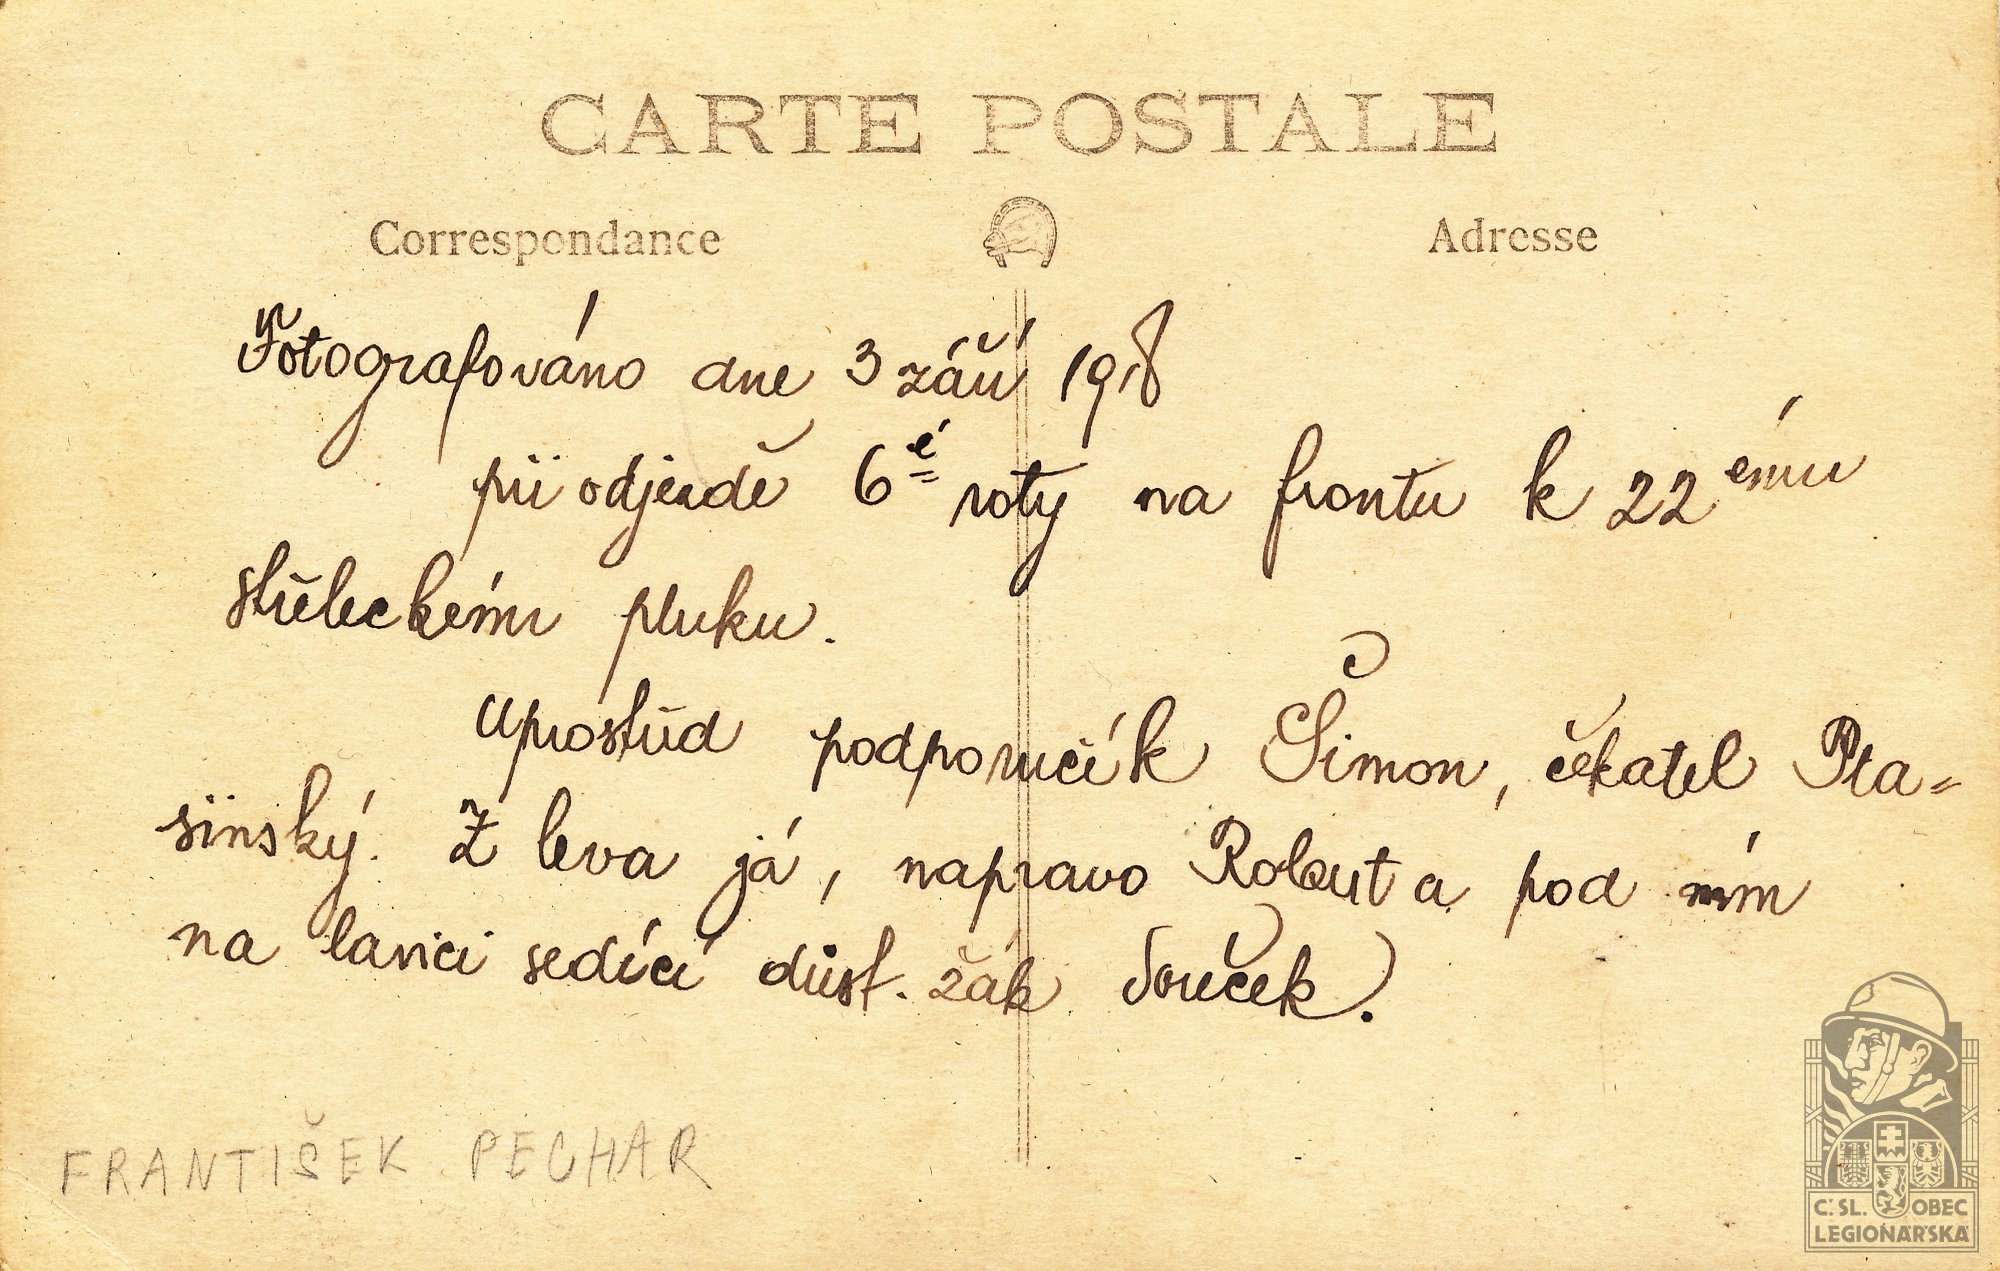 CARTE POSTALE
Correspondance
Adresse
Fotografováno dne 3 září 1918
při odjezdě 6é roty na frontu k 22ému
střeleckému pluku.
Uprostřed podporučík Šimon, čekatel Pta=
šinský. Z leva já, napravo a pod ním
na lavici sedící důst. žák Souček.
FRANTIŠEK PECHAR
Č. SL. OBEC
LEGIONÁŘSKÁ